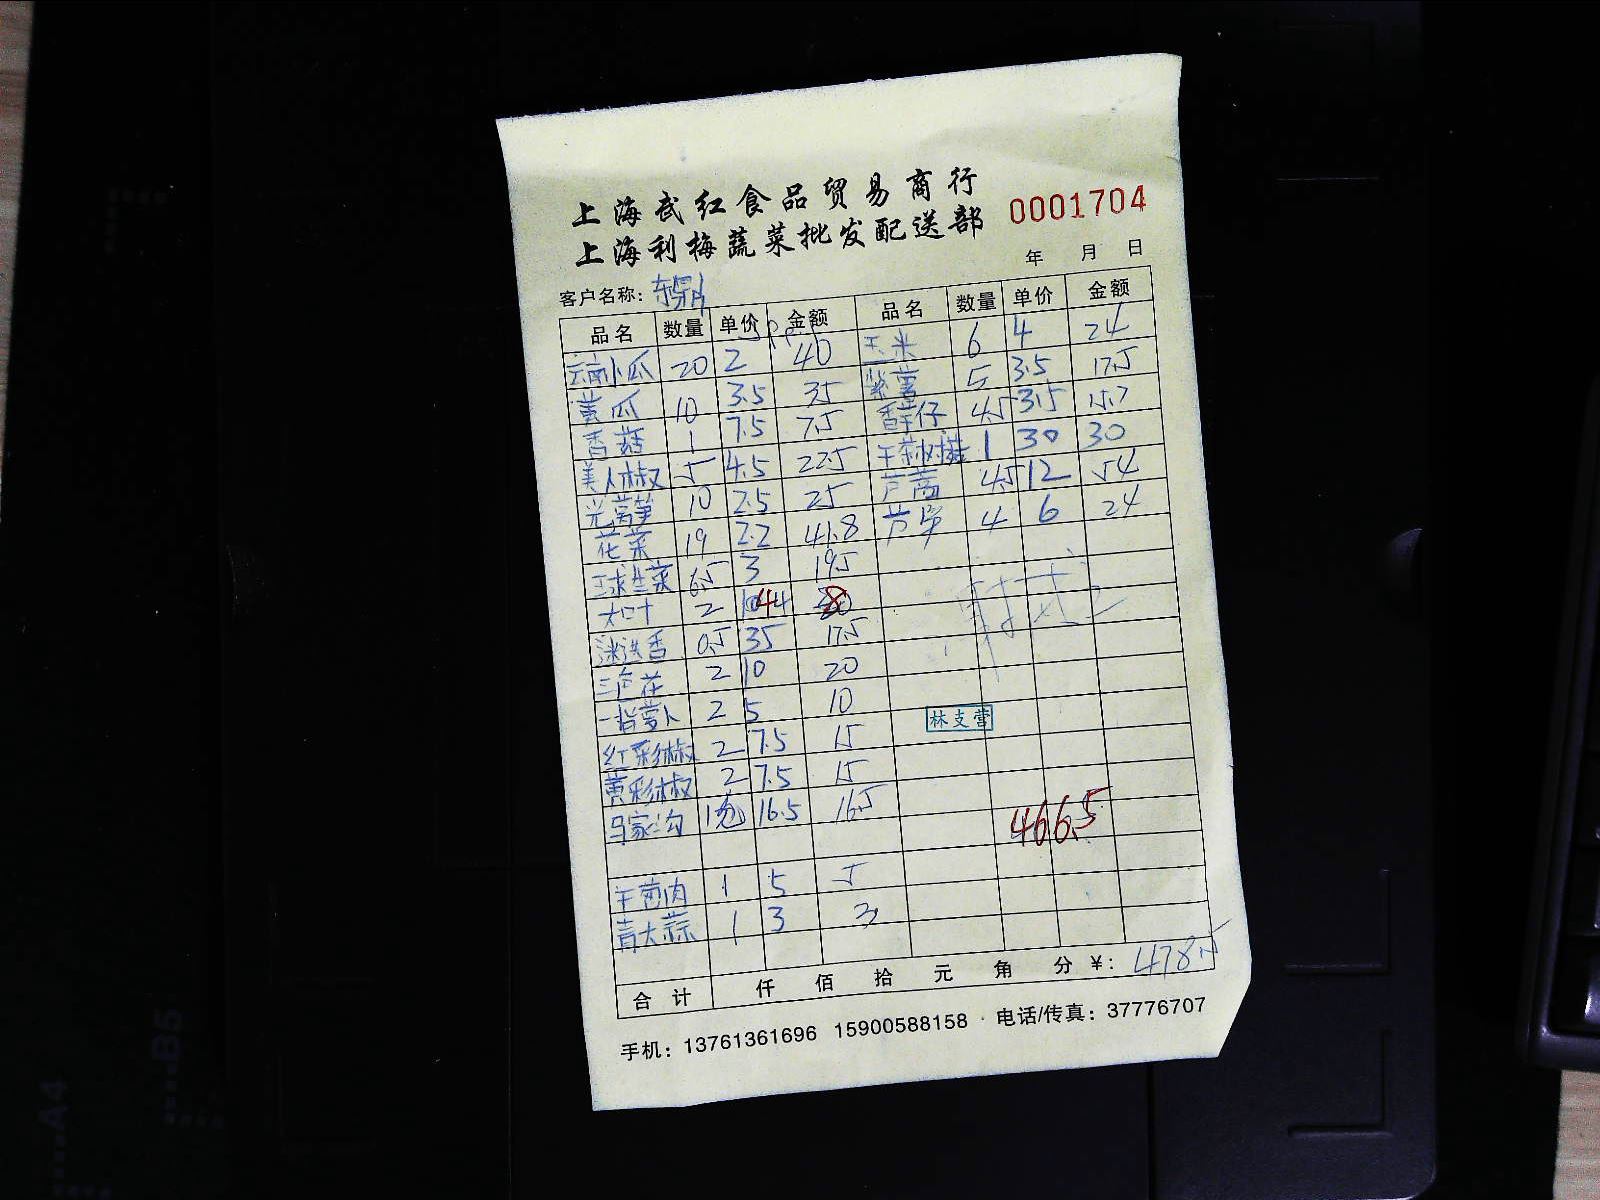 上海武红食品贸易商行
上海利梅蔬菜批发配送部
0001704
年 月 日
客户名称：东鼎
品名 数量 单价 金额 品名 数量 单价 金额
云南小瓜 20 2 40 玉米 6 4 24
黄瓜 10 3.5 35 紫薯 5 3.5 17.5
香菇 1 7.5 7.5 香芋仔 4.5 3.5 15.7
美人椒 5 4.5 22.5 干茶树菇 1 30 30
光莴笋 10 2.5 25 芦蒿 4.5 12 54
花菜 19 2.2 41.8 芦笋 4 6 24
玉球生菜 6.5 3 19.5
大叶 2 4 8
迷迭香 0.5 35 17.5
三色花 2 10 20
一指萝卜 2 5 10
红彩椒 2 7.5 15
林支营
黄彩椒 2 7.5 15
马家沟 1包 16.5 16.5
466.5
干葱肉 1 5 5
青大蒜 1 3 3
合计 仟 佰 拾 元 角 分 ¥: 478.5
手机：13761361696 15900588158 · 电话/传真：37776707